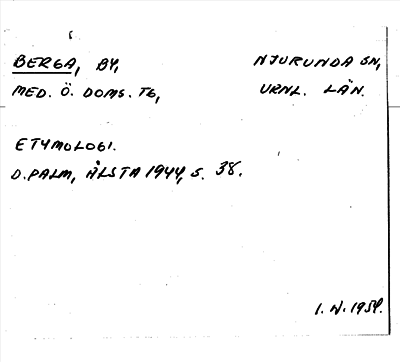 BERGA, BY, NJURUNDA SN,
MED. Ö. DOMS. TG, VRNL. LÄN.
ETYMOLOGI.
D. PALM, ÅLSTA 1944, S. 38.
1. W. 1954.